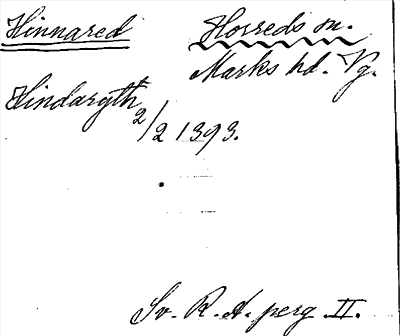 Hinnared Horreds sn.
Marks hd. Vg.
Hindaryth 2/2 1393.
Sv. R. A. perg II.